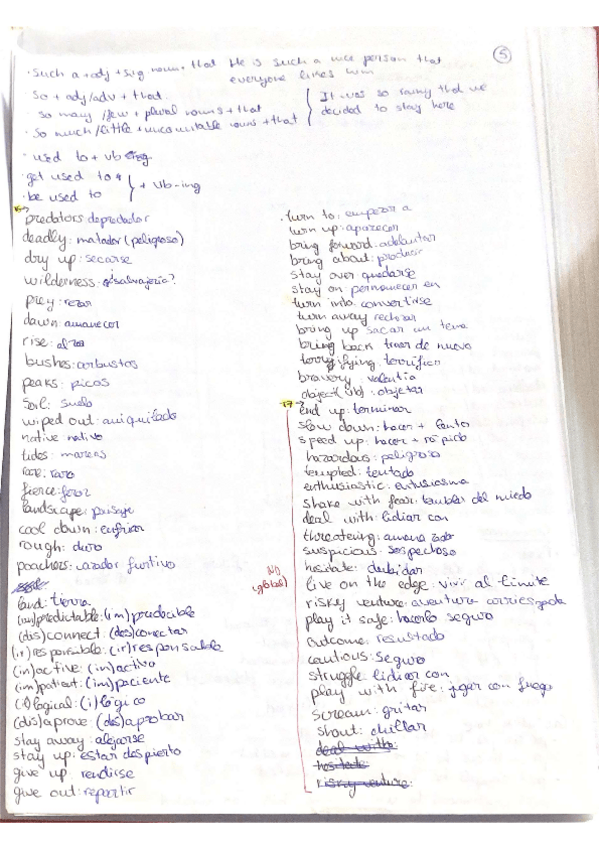 5
· Such a + adj + sing noun + that He is such a nice person that
everyone likes him
· So + adj/adv + that
· so many /few + plural nouns + that
· So much/little + uncountable nouns + that
It was so rainy that we
decided to stay here
· used to + vb
· get used to
· be used to
+ Vb-ing
predators: depredador
deadly: matador (peligroso)
dry up: secarse
wilderness: salvajería?
prey: rezar
dawn: amanecer
rise: alza
bushes: arbustos
peaks: picos
Soil: suelo
wiped out: aniquilado
native: nativo
tides: mareas
rare: raro
fierce: feroz
landscape: paisaje
cool down: enfriar
rough: duro
poachers: cazador furtivo
land: tierra
(un)predictable: (im)predecible
(dis)connect: (des)conectar
(ir)responsible: (ir)responsable
(in)active: (in)activo
(im)patient: (im)paciente
(il)logical: (i)lógico
(dis)aprove: (des)aprobar
stay away: alejarse
stay up: estar despierto
give up: rendirse
give out: repartir
· turn to: empezar a
turn up: aparecer
bring forward: adelantar
bring about: producir
stay over: quedarse
stay on: permanecer en
turn into: convertirse
turn away: rechazar
bring up: sacar un tema
bring back: traer de nuevo
terrifying: terrorifico
bravery: valentía
object (vb): objetar
end up: terminar
slow down: hacer + lento
speed up: hacer + rápido
hazardous: peligroso
tempted: tentado
enthusiastic: entusiasma
shake with fear: temblar del miedo
deal with: lidiar con
threatering: amenazador
suspicious: sospechoso
hesitate: dudar
live on the edge: vivir al límite
risky venture: aventura arriesgada
play it safe: hacerlo seguro
Outcome: resultado
cautious: seguro
struggle: lidiar con
play with fire: jugar con fuego
scream: gritar
shout: chillar
deal with
hesitate
risky venture
NO
(global)